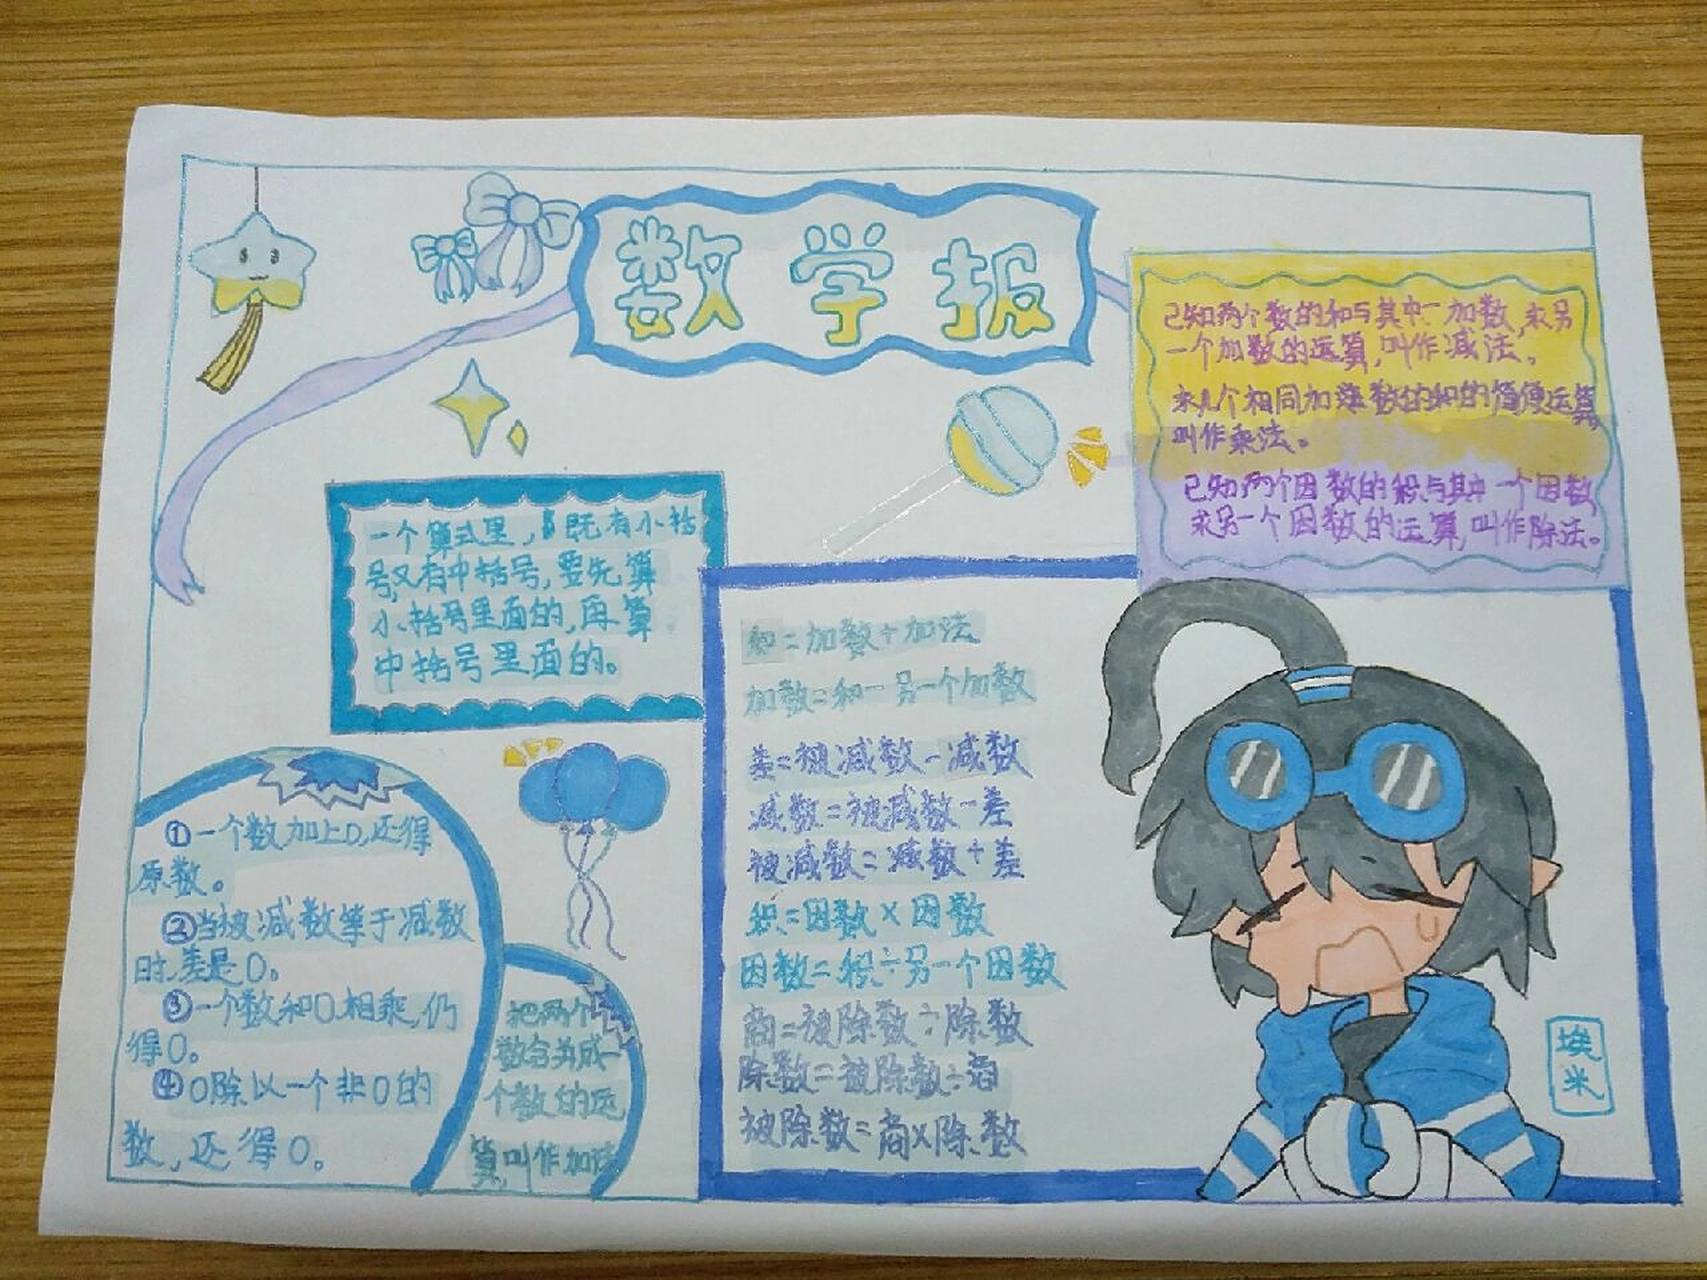 数学报
已知两个数的和与其中一加数,求另
一个加数的运算,叫作减法。
求几个相同加数的和的简便运算,
叫作乘法。
已知两个因数的积与其中一个因数
求另一个因数的运算,叫作除法。
一个算式里,既有小括
号,又有中括号,要先算
小括号里面的,再算
中括号里面的。
和=加数+加法
加数=和-另一个加数
差=被减数-减数
减数=被减数-差
被减数=减数+差
积=因数×因数
因数=积÷另一个因数
商=被除数÷除数
除数=被除数÷商
被除数=商×除数
①一个数加上0,还得
原数。
②当被减数等于减数
时,差是0。
③一个数和0相乘,仍
得0。
④0除以一个非0的
数,还得0。
把两个
数合并成一
个数的运
算,叫作加法
埃
米